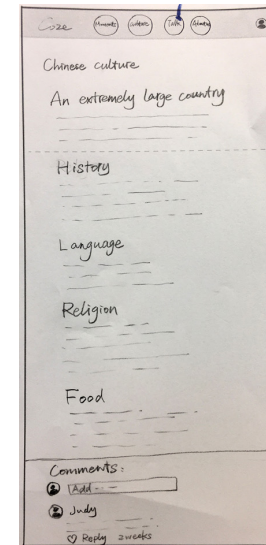 Coze Moments Culture Talk
Chinese culture
An extremely large country
History
Language
Religion
Food
Comments:
Add
Judy
Reply 2weeks